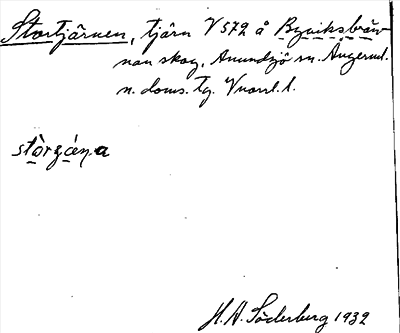 Stortjärnen, tjärn V 572 å
nan skog, Anundsjö sn. Ångerml.
n. doms. tg. Vnorrl. l.
stòrꞩä́n.a
H. A. Söderberg 1932